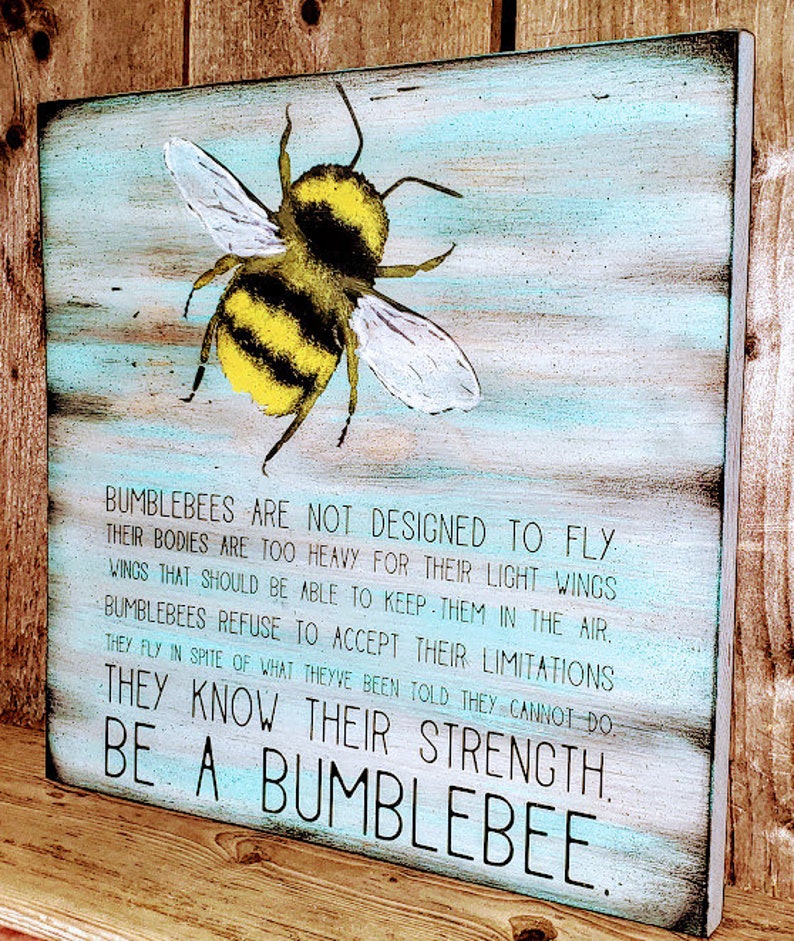 BUMBLEBEES ARE NOT DESIGNED TO FLY.
THEIR BODIES ARE TOO HEAVY FOR THEIR LIGHT WINGS
WINGS THAT SHOULD BE ABLE TO KEEP THEM IN THE AIR.
BUMBLEBEES REFUSE TO ACCEPT THEIR LIMITATIONS
THEY FLY IN SPITE OF WHAT THEYVE BEEN TOLD THEY CANNOT DO.
THEY KNOW THEIR STRENGTH.
BE A BUMBLEBEE.